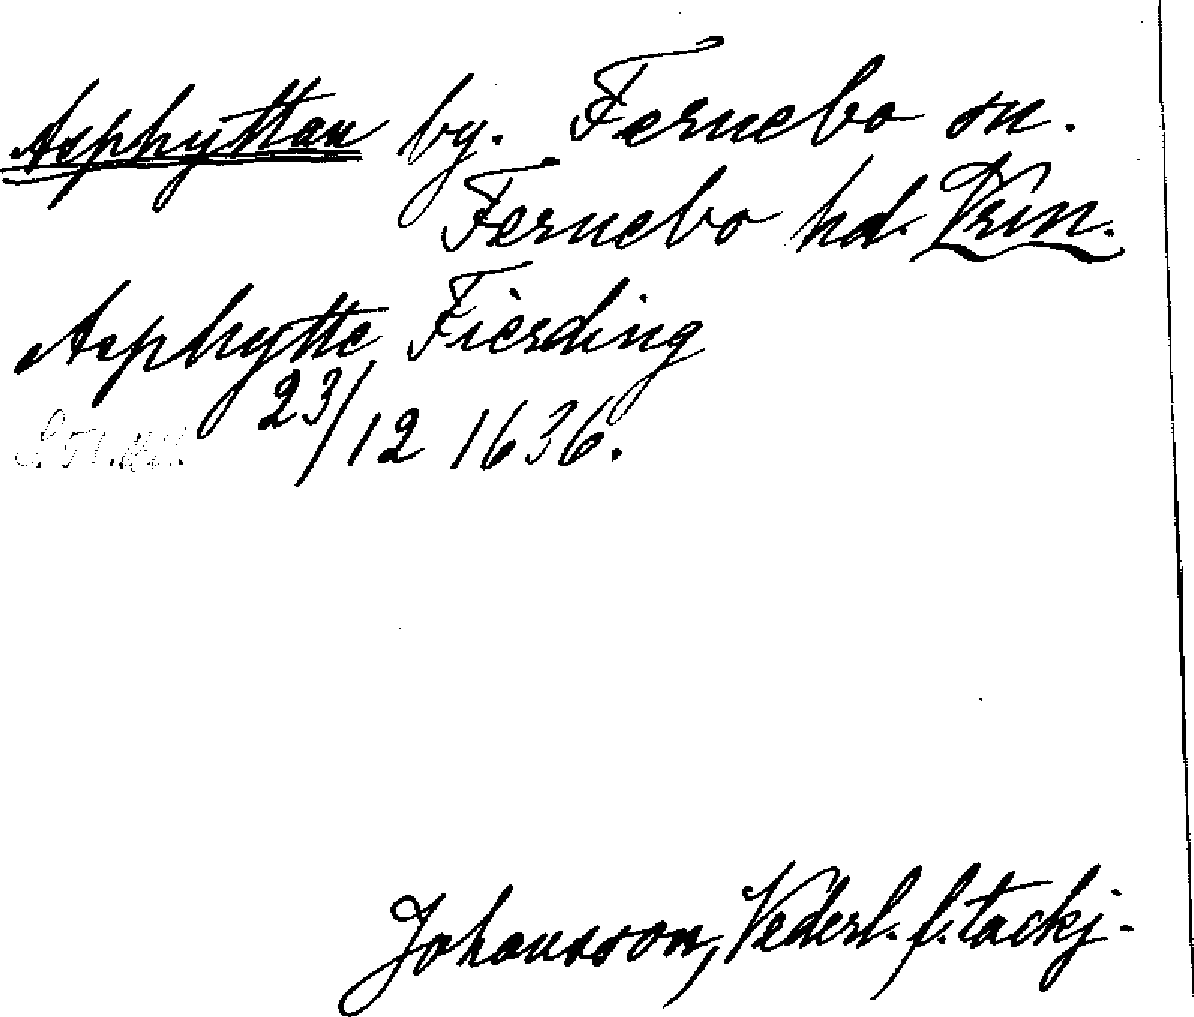 Asphyttan by. Fernebo sn.
Fernebo hd. Vrm.
Asphytte Fierding
23/12 1636.
Johansson, Vederl. f. tackj.